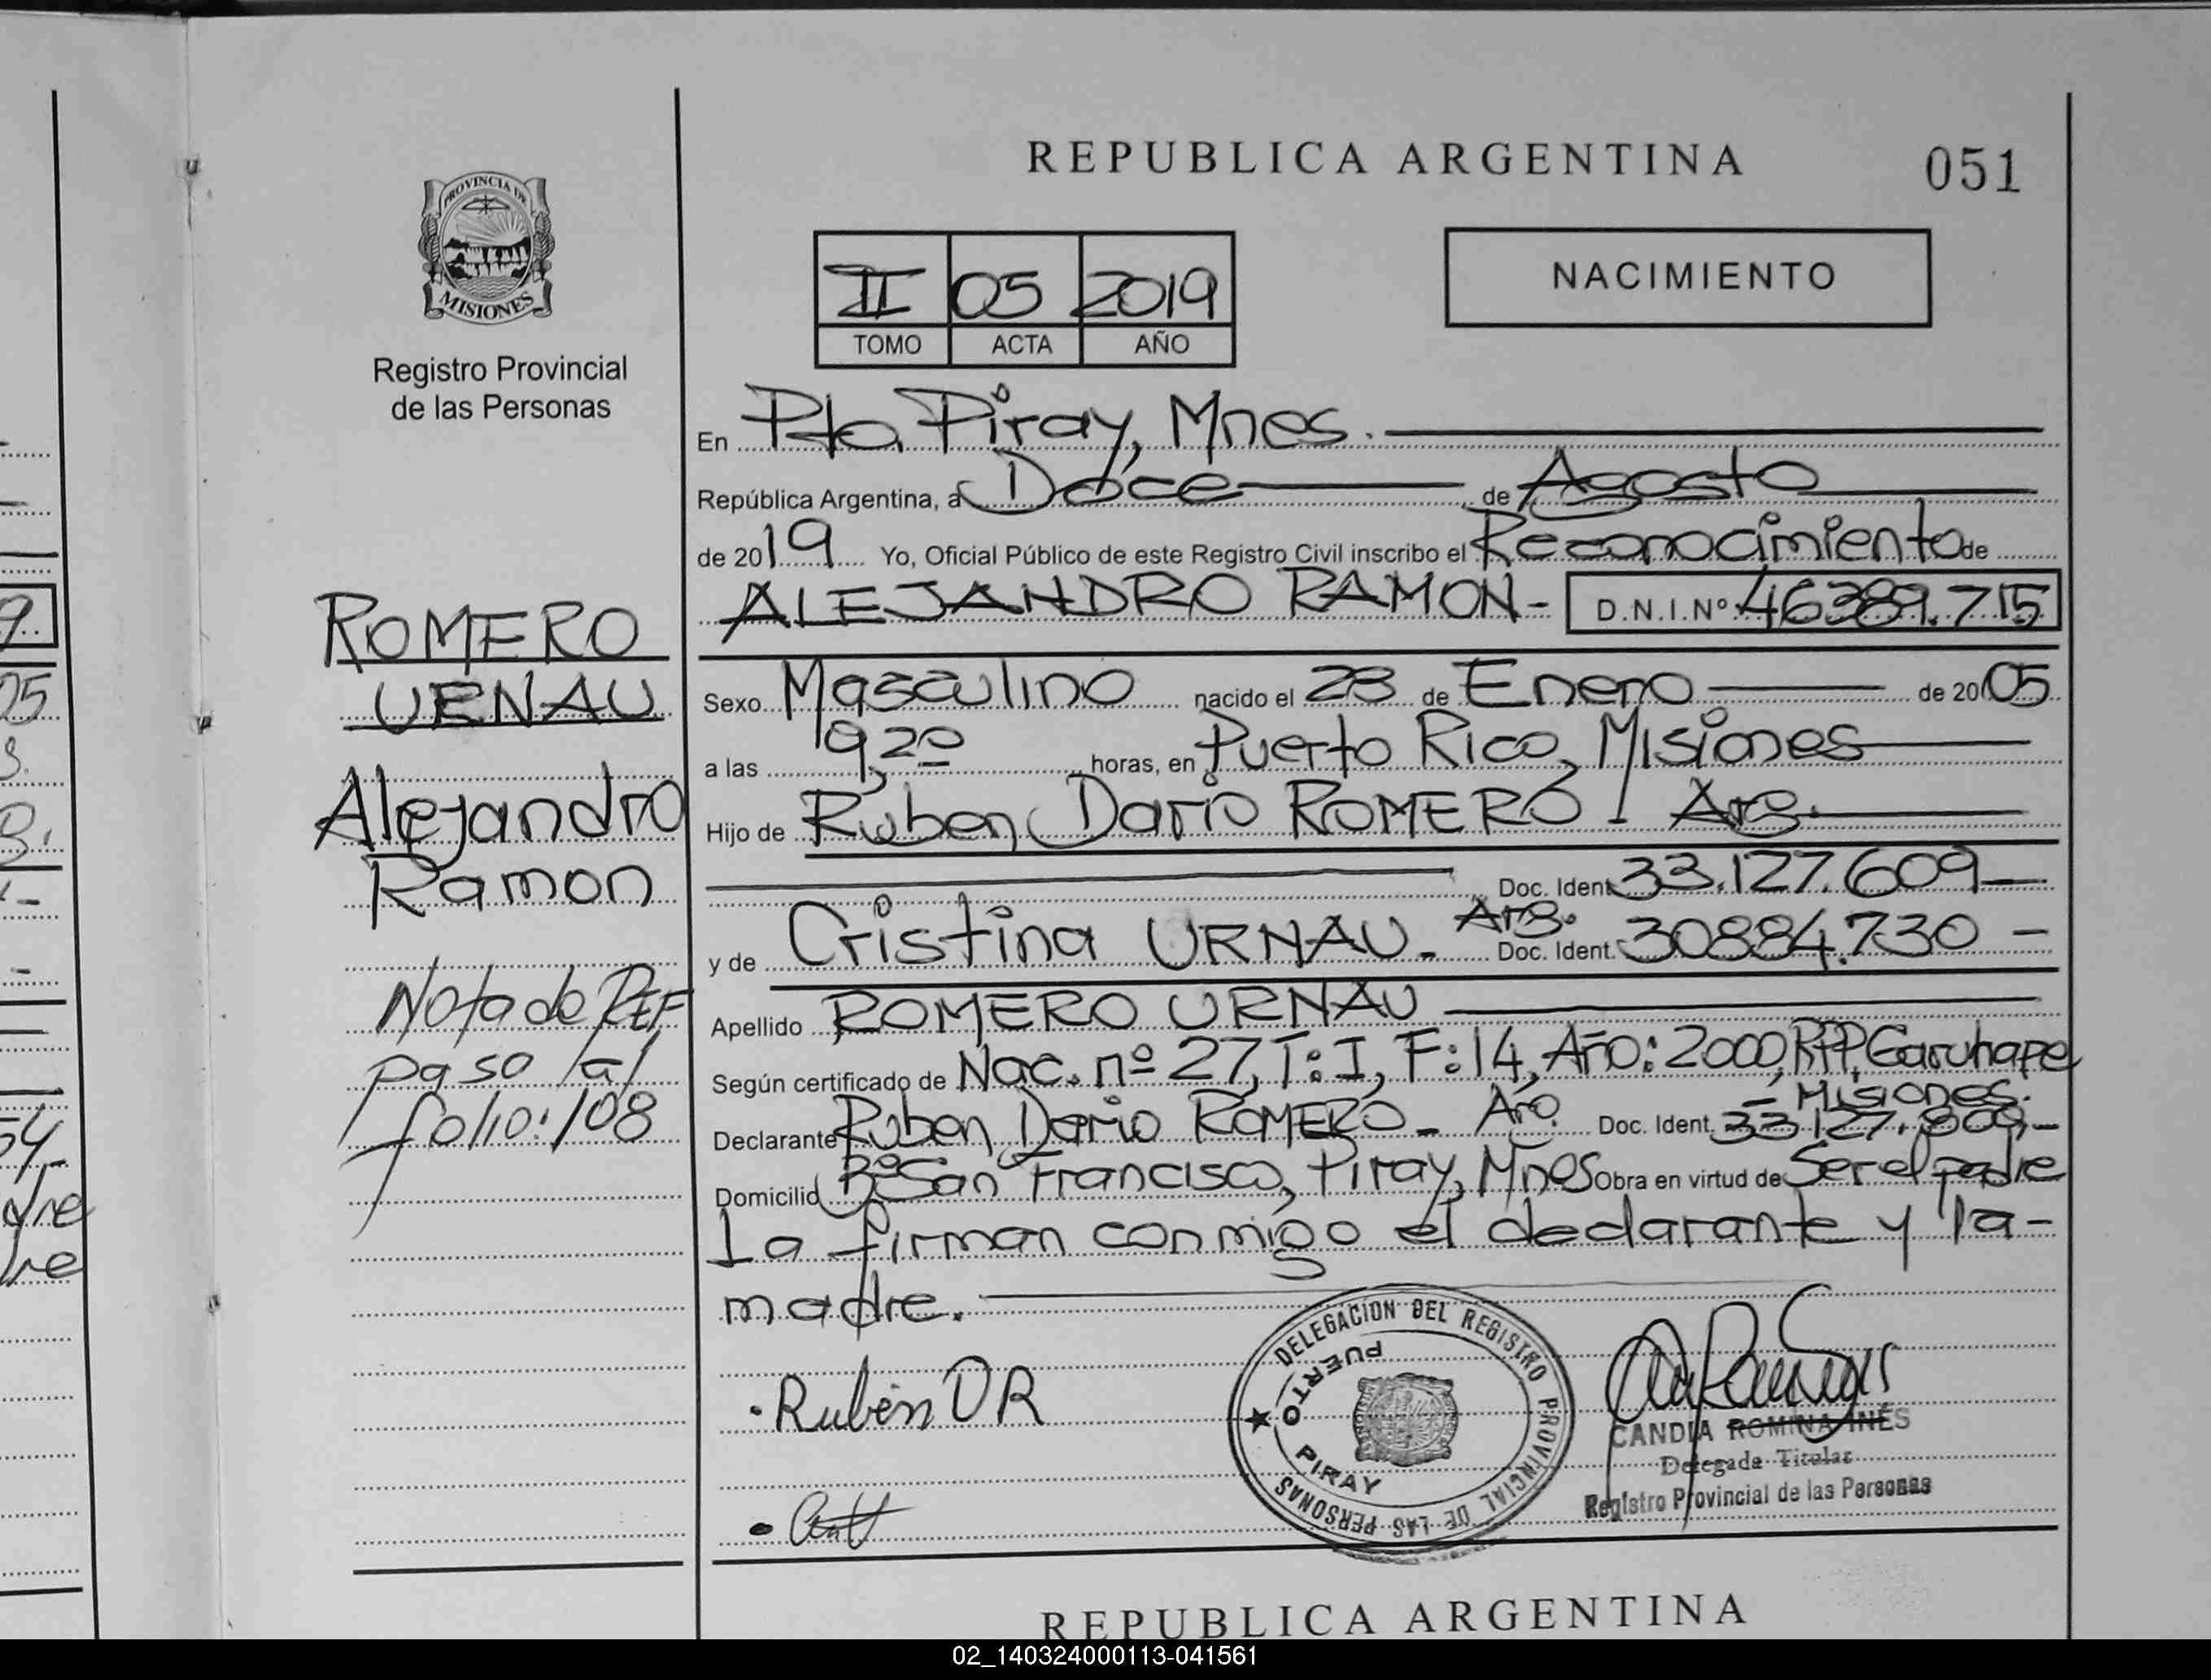 REPUBLICA ARGENTINA
051
PROVINCIA DE
MISIONES
Registro Provincial
de las Personas
II 05 2019
TOMO ACTA AÑO
NACIMIENTO
En Pto. Piray, Mnes.
República Argentina, a Doce de Agosto
de 2019 Yo, Oficial Público de este Registro Civil inscribo el Reconocimiento de
ALEJANDRO RAMON- D.N.I.Nº 46389.715
ROMERO
URNAU
Alejandro
Ramon
Nota de REF
paso al
folio: 108
Sexo Masculino nacido el 23 de Enero de 2005
a las 19,20 horas, en Puerto Rico, Misiones
Hijo de Ruben Dario ROMERO - Arg.
Doc. Ident. 33.127.609-
y de Cristina URNAU.- Arg. Doc. Ident. 30884.730 -
Apellido ROMERO URNAU
Según certificado de Nac. nº 27, T: I, F: 14, Año: 2000, RPP, Garuhape
- Misiones.
Declarante Ruben Dario ROMERO - Arg. Doc. Ident. 33127.809,-
Domicilio Bº San Francisco, Piray, Mnes Obra en virtud de Ser el padre
La firman conmigo el declarante y la-
madre.
DELEGACION DEL REGISTRO PROVINCIAL DE LAS PERSONAS
PUERTO PIRAY
Rubén D R
CANDIA ROMINA INÉS
Delegada Titular
Registro Provincial de las Personas
REPUBLICA ARGENTINA
02_140324000113-041561